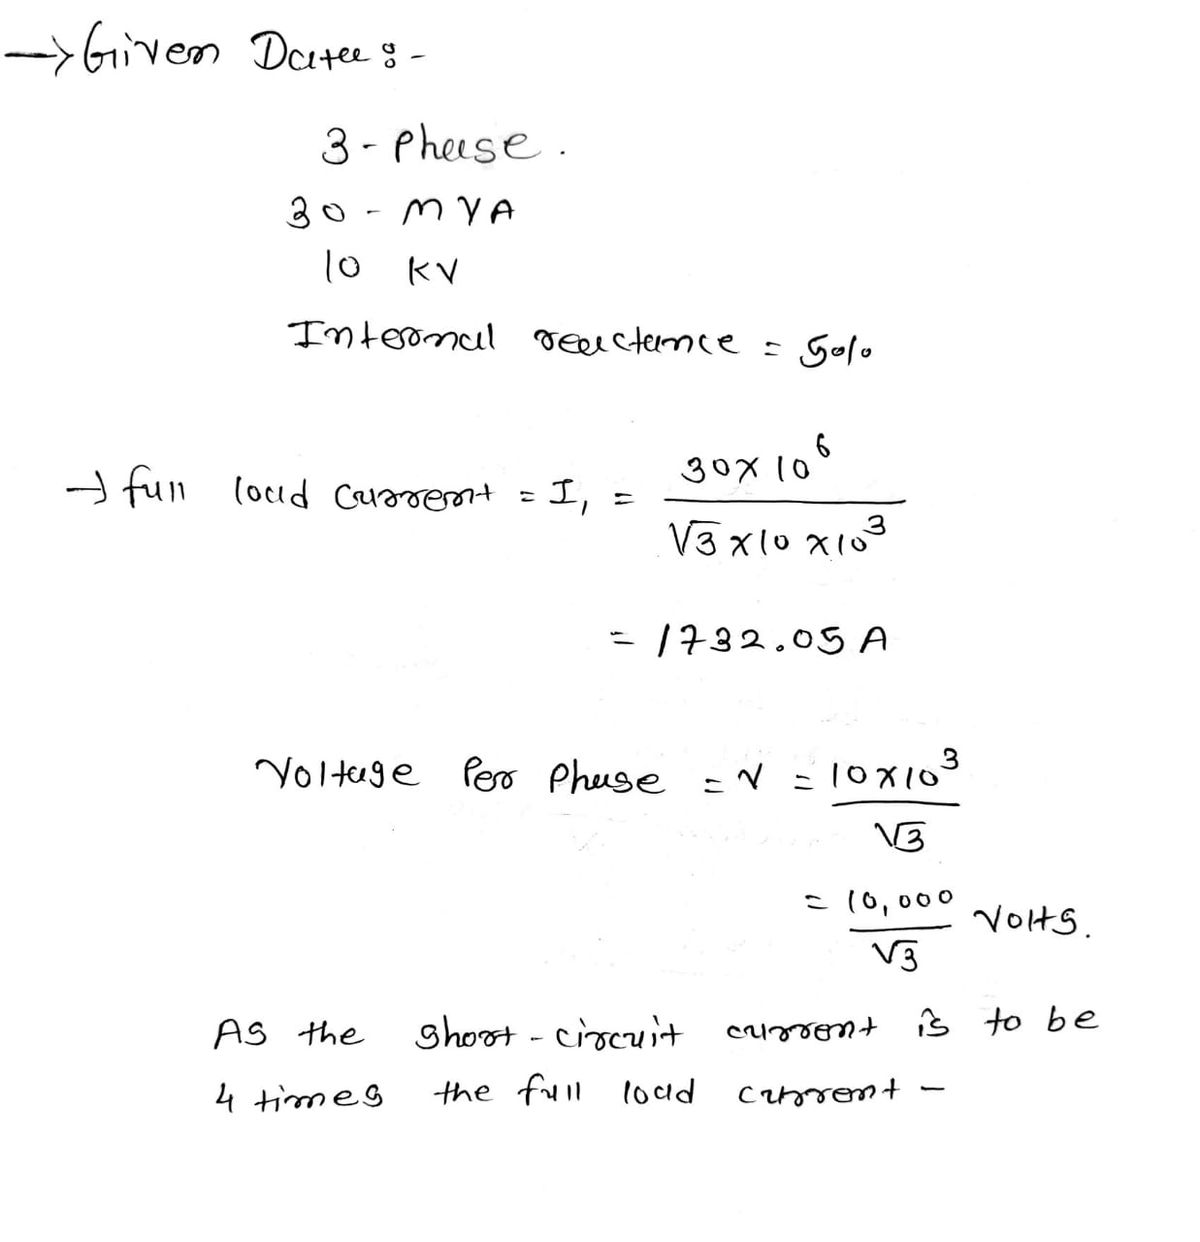 → Given Data :-
3 - Phase .
30 - MVA
10 KV
Internal reactance = 5%
→ full load current = I₁ = 30×10⁶ / √3 ×10 ×10³
= 1732.05 A
Voltage Per Phase = V = 10×10³ / √3
= 10,000 / √3 Volts.
As the short - circuit current is to be
4 times the full load current -